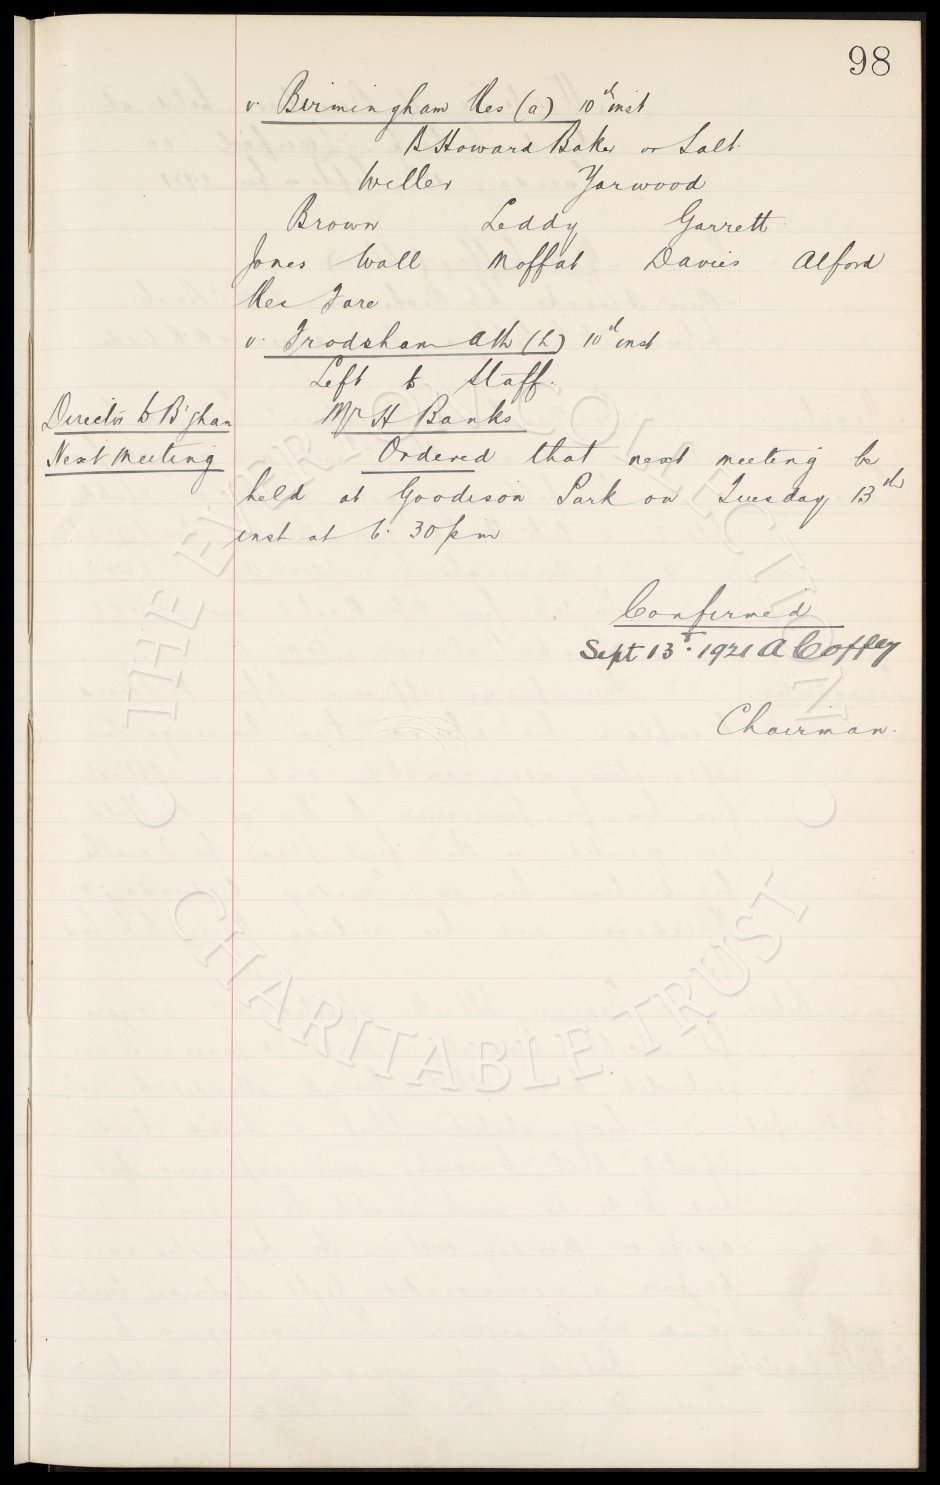 98
v. Birmingham Res (a) 10th inst
B Howard Baker or Salt.
Weller Yarwood
Brown Leddy Garrett
Jones Wall Moffat Davies Alford
Res Fare
v. Frodsham Ath (h) 10th inst
Left to Staff.
Director to B'gham Mr H Banks
Next Meeting Ordered that next meeting be
held at Goodison Park on Tuesday 13th
inst at 6.30pm
Confirmed
Sept 13th. 1921 A Coffey
Chairman.
THE EVERTON COLLECTION
CHARITABLE TRUST